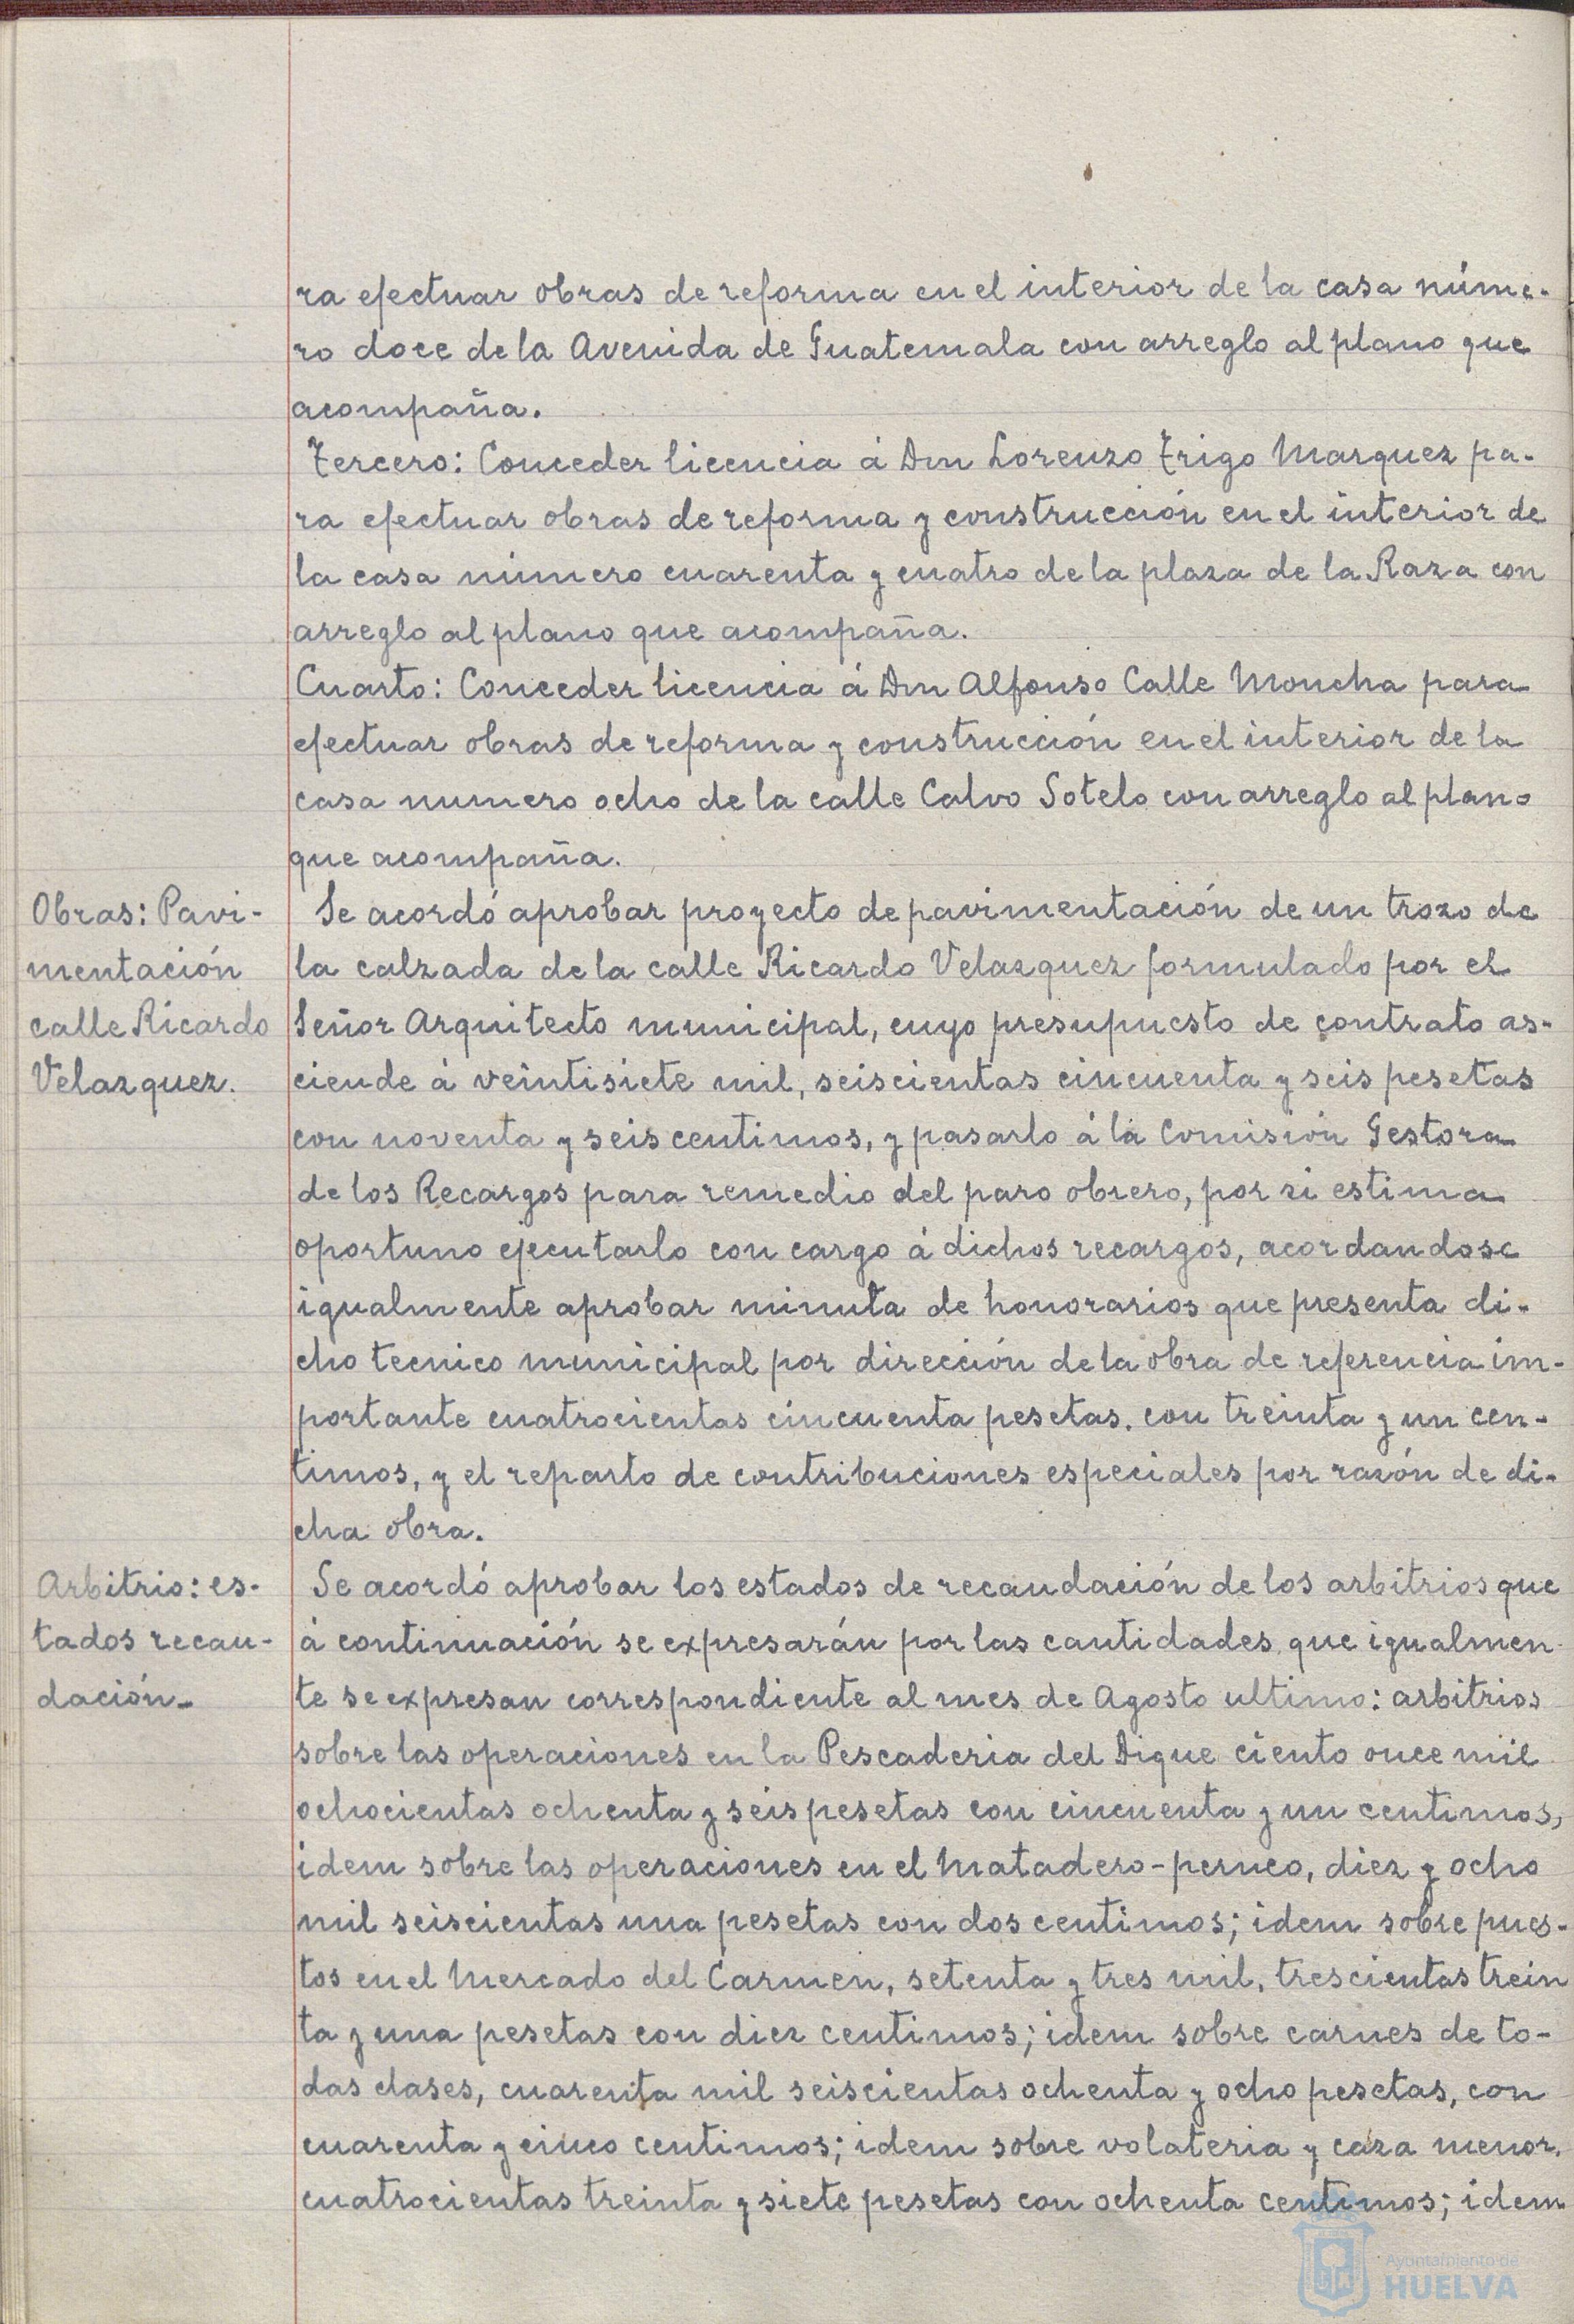 ra efectuar obras de reforma en el interior de la casa núme-
ro doce de la Avenida de Guatemala con arreglo al plano que
acompaña.
Tercero: Conceder licencia á Don Lorenzo Trigo Marquez pa-
ra efectuar obras de reforma y construcción en el interior de
la casa número cuarenta y cuatro de la plaza de la Raza con
arreglo al plano que acompaña.
Cuarto: Conceder licencia á Don Alfonso Calle Moncha para
efectuar obras de reforma y construcción en el interior de la
casa numero ocho de la calle Calvo Sotelo con arreglo al plano
que acompaña.
Obras: Pavi-
mentación
calle Ricardo
Velazquez.
Se acordó aprobar proyecto de pavimentación de un trozo de
la calzada de la calle Ricardo Velazquez formulado por el
Señor Arquitecto municipal, cuyo presupuesto de contrato as-
ciende á veintisiete mil, seiscientas cincuenta y seis pesetas
con noventa y seis centimos, y pasarlo á la Comisión Gestora
de los Recargos para remedio del paro obrero, por si estima
oportuno ejecutarlo con cargo á dichos recargos, acordandose
igualmente aprobar minuta de honorarios que presenta di-
cho tecnico municipal por dirección de la obra de referencia im-
portante cuatrocientas cincuenta pesetas. con treinta y un cen-
timos, y el reparto de contribuciones especiales por razón de di-
cha obra.
Arbitrio: es-
tados recau-
dación-
Se acordó aprobar los estados de recaudación de los arbitrios que
á continuación se expresarán por las cantidades que igualmen-
te se expresan correspondiente al mes de Agosto ultimo: arbitrios
sobre las operaciones en la Pescaderia del Dique ciento once mil
ochocientas ochenta y seis pesetas con cincuenta y un centimos,
idem sobre las operaciones en el Matadero-perneo, diez y ocho
mil seiscientas una pesetas con dos centimos; idem sobre pues-
tos en el Mercado del Carmen, setenta y tres mil, trescientas trein
ta y una pesetas con diez centimos; idem sobre carnes de to-
das clases, cuarenta mil seiscientas ochenta y ocho pesetas, con
cuarenta y cinco centimos; idem sobre volateria y caza menor.
cuatrocientas treinta y siete pesetas con ochenta centimos; idem
Ayuntamiento de
HUELVA